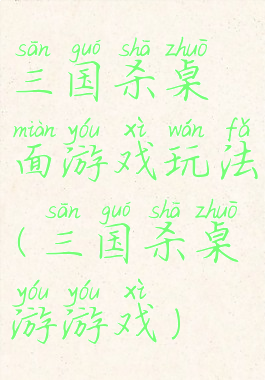 sān guó shā zhuō
三国杀桌
miàn yóu xì wán fǎ
面游戏玩法
sān guó shā zhuō
(三国杀桌
yóu yóu xì
游游戏)